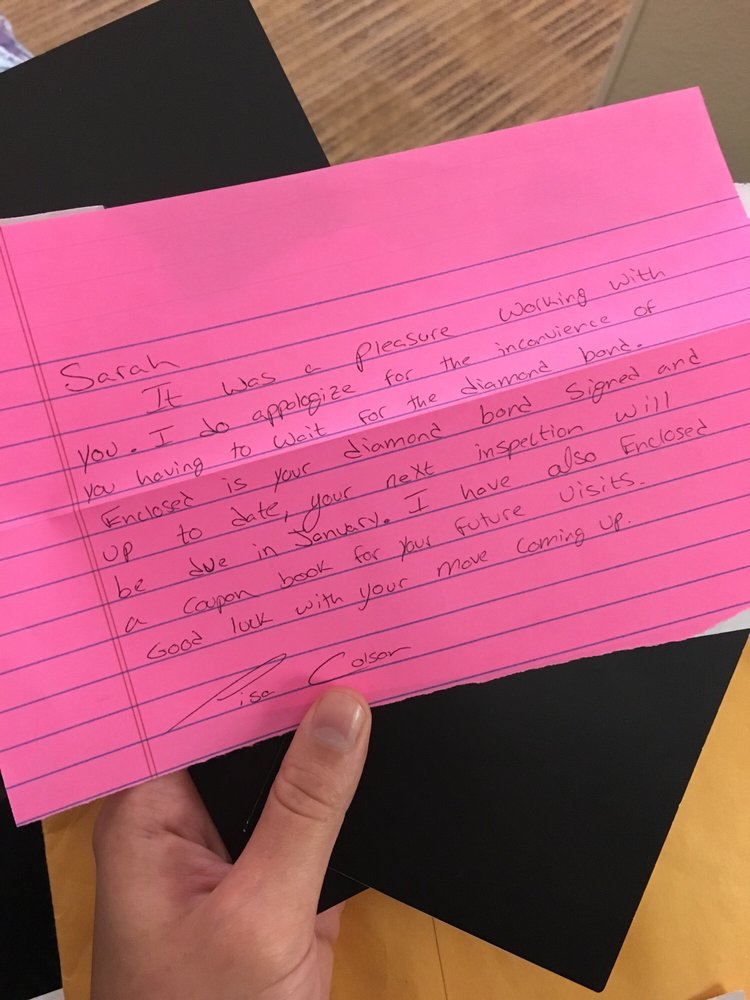 Sarah
It was a pleasure working with
you. I do appologize for the inconvience of
you having to wait for the diamond bond.
Enclosed is your diamond bond signed and
up to date, your next inspection will
be due in January. I have also Enclosed
a coupon book for your future visits.
Good luck with your move coming up.
Lisa Colson